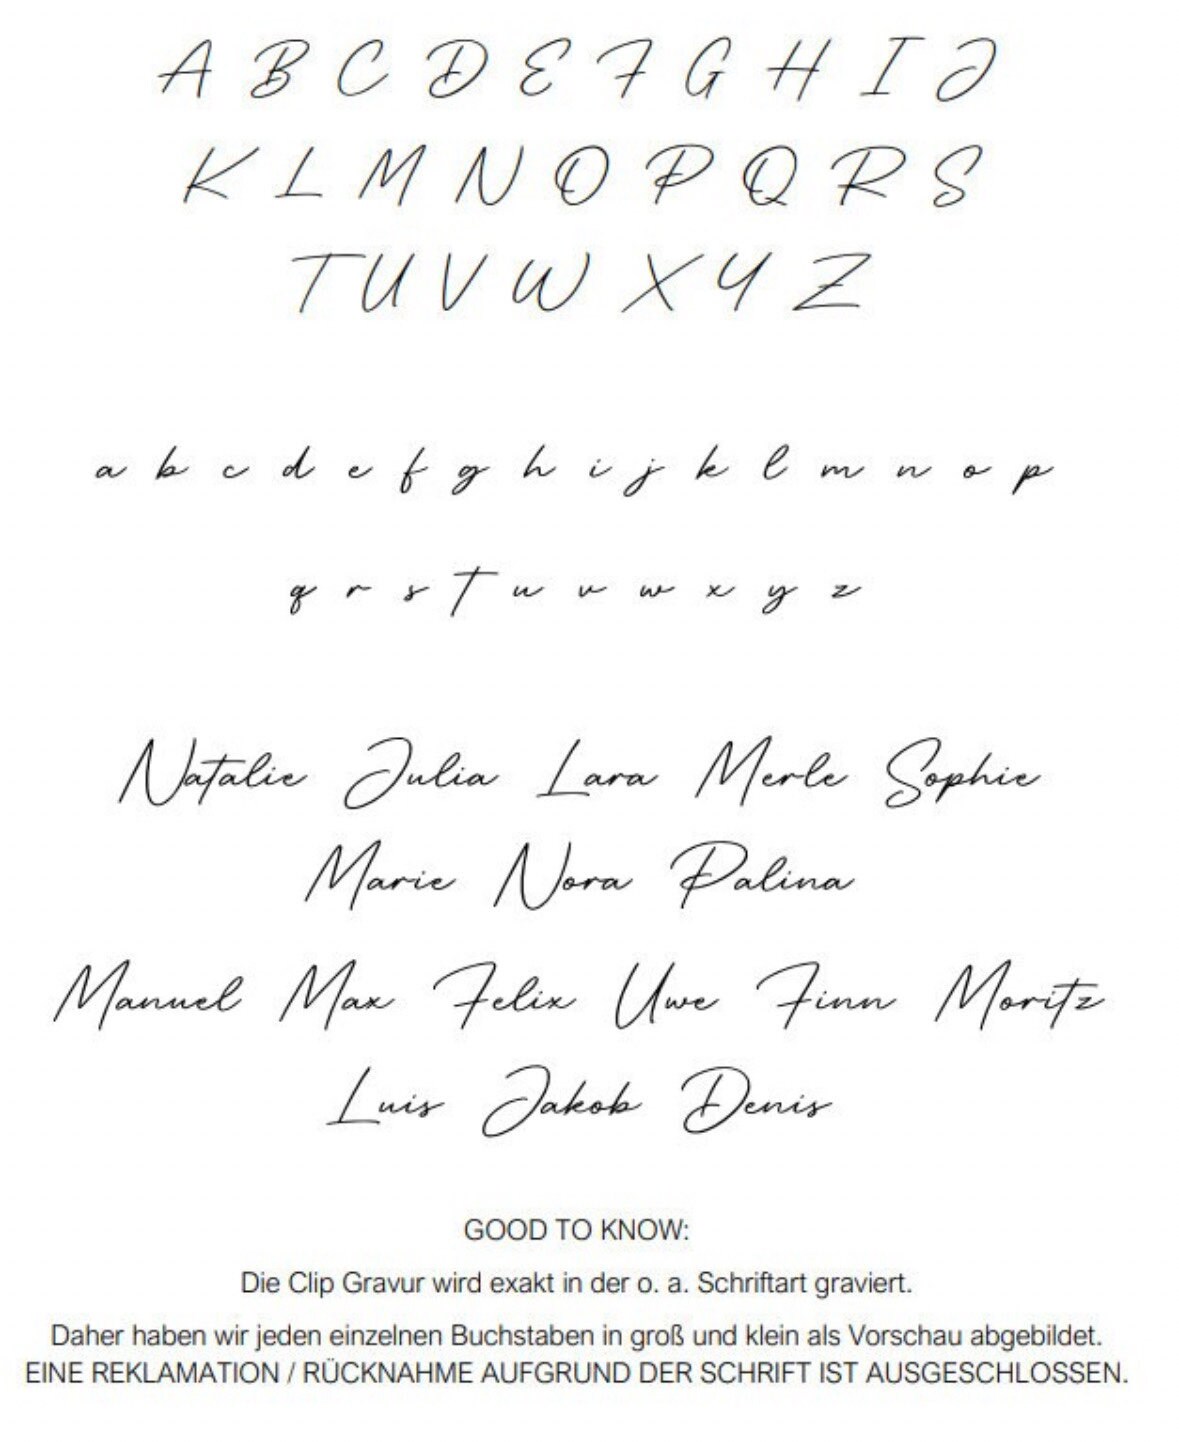 A B C D E F G H I J
K L M N O P Q R S
T U V W X Y Z
a b c d e f g h i j k l m n o p
q r s t u v w x y z
Natalie Julia Lara Merle Sophie
Marie Nora Palina
Manuel Max Felix Uwe Finn Moritz
Luis Jakob Denis
GOOD TO KNOW:
Die Clip Gravur wird exakt in der o. a. Schriftart graviert.
Daher haben wir jeden einzelnen Buchstaben in groß und klein als Vorschau abgebildet.
EINE REKLAMATION / RÜCKNAHME AUFGRUND DER SCHRIFT IST AUSGESCHLOSSEN.